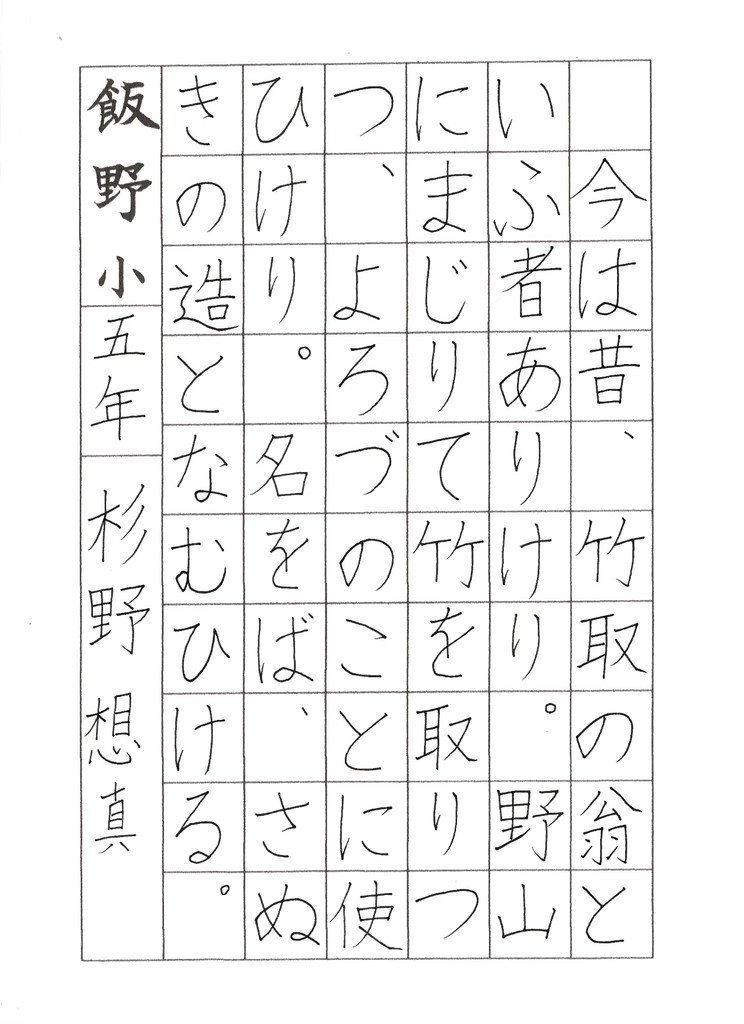 今は昔、竹取の翁と
いふ者ありけり。野山
にまじりて竹を取りつ
つ、よろづのことに使
ひけり。名をば、さぬ
きの造となむひける。
飯野小五年 杉野想真